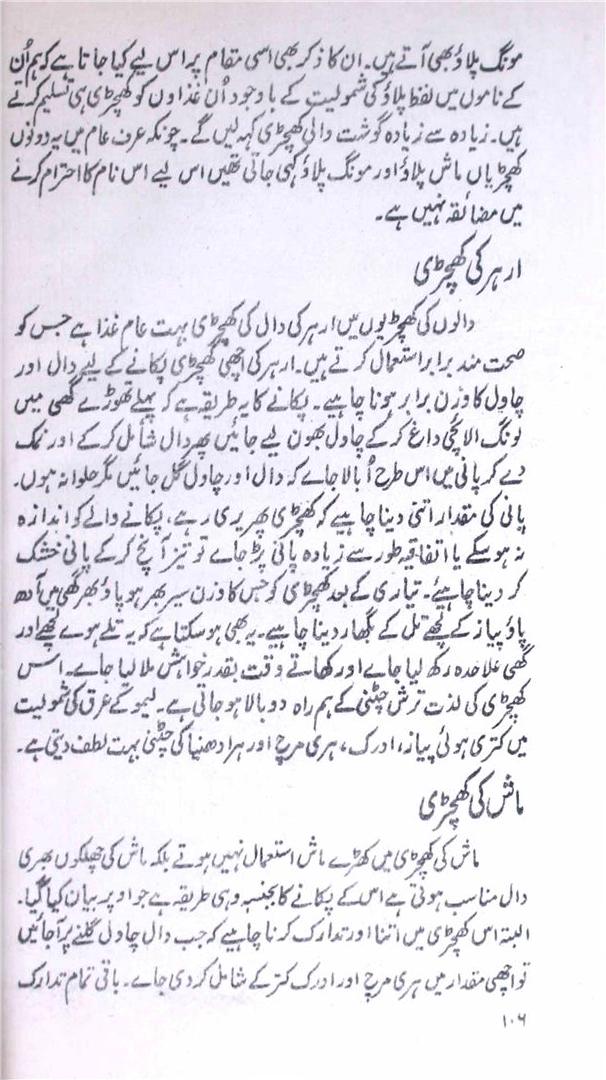 مونگ پلاؤ بھی آتے ہیں۔ ان کا ذکر بھی اسی مقام پر اس لیے کیا جاتا ہے کہ ہم اُن
کے ناموں میں لفظ پلاؤ کی شمولیت کے باوجود اُن غذاوں کو کھچڑی ہی تسلیم کرتے
ہیں۔ زیادہ سے زیادہ گوشت والی کھچڑی کہہ لیں گے۔ چونکہ عرف عام میں یہ دونوں
کھچڑیاں ماش پلاؤ اور مونگ پلاؤ کہی جاتی تھیں اس لیے اس نام کا احترام کرنے
میں مضائقہ نہیں ہے۔
ارہر کی کھچڑی
دالوں کی کھچڑیوں میں ارہر کی دال کی کھچڑی بہت عام غذا ہے جس کو
صحت مند برابر استعمال کرتے ہیں۔ ارہر کی اچھی کھچڑی پکانے کے لیے دال اور
چاول کا وزن برابر ہونا چاہیے۔ پکانے کا یہ طریقہ ہے کہ پہلے تھوڑے گھی میں
لونگ الائچی داغ کر کے چاول بھون لیے جائیں پھر دال شامل کر کے اور نمک
دے کر پانی میں اس طرح اُبالا جاے کہ دال اور چاول گل جائیں مگر حلوا نہ ہوں۔
پانی کی مقدار اتنی دینا چاہیے کہ کھچڑی پھریری رہے، پکانے والے کو اندازہ
نہ ہو سکے یا اتفاقیہ طور سے زیادہ پانی پڑ جاے تو تیز آنچ کر کے پانی خشک
کر دینا چاہیئے۔ تیاری کے بعد کھچڑی کو جس کا وزن سیر بھر ہو پاؤ بھر گھی میں آدھ
پاؤ پیاز کے لچھے تل کے بگھار دینا چاہیے۔ یہ بھی ہو سکتا ہے کہ یہ تلے ہوے لچھے اور
گھی علاحدہ رکھ لیا جاے اور کھاتے وقت بقدر خواہش ملا لیا جاے۔ اس
کھچڑی کی لذت ترش چٹنی کے ہم راہ دوبالا ہو جاتی ہے۔ لیمو کے عرق کی شمولیت
میں کتری ہوئی پیاز، ادرک، ہری مرچ اور ہرا دھنیا کی چٹنی بہت لطف دیتی ہے۔
ماش کی کھچڑی
ماش کی کھچڑی میں کھڑے ماش استعمال نہیں ہوتے بلکہ ماش کی چھلکوں بھری
دال مناسب ہوتی ہے اس کے پکانے کا بجنسہ وہی طریقہ ہے جو اوپر بیان کیا گیا۔
البتہ اس کھچڑی میں اتنا اور تدارک کرنا چاہیے کہ جب دال چاول گلنے پر آجائیں
تو اچھی مقدار میں ہری مرچ اور ادرک کتر کے شامل کر دی جاے۔ باقی تمام تدارک
۱۰۶